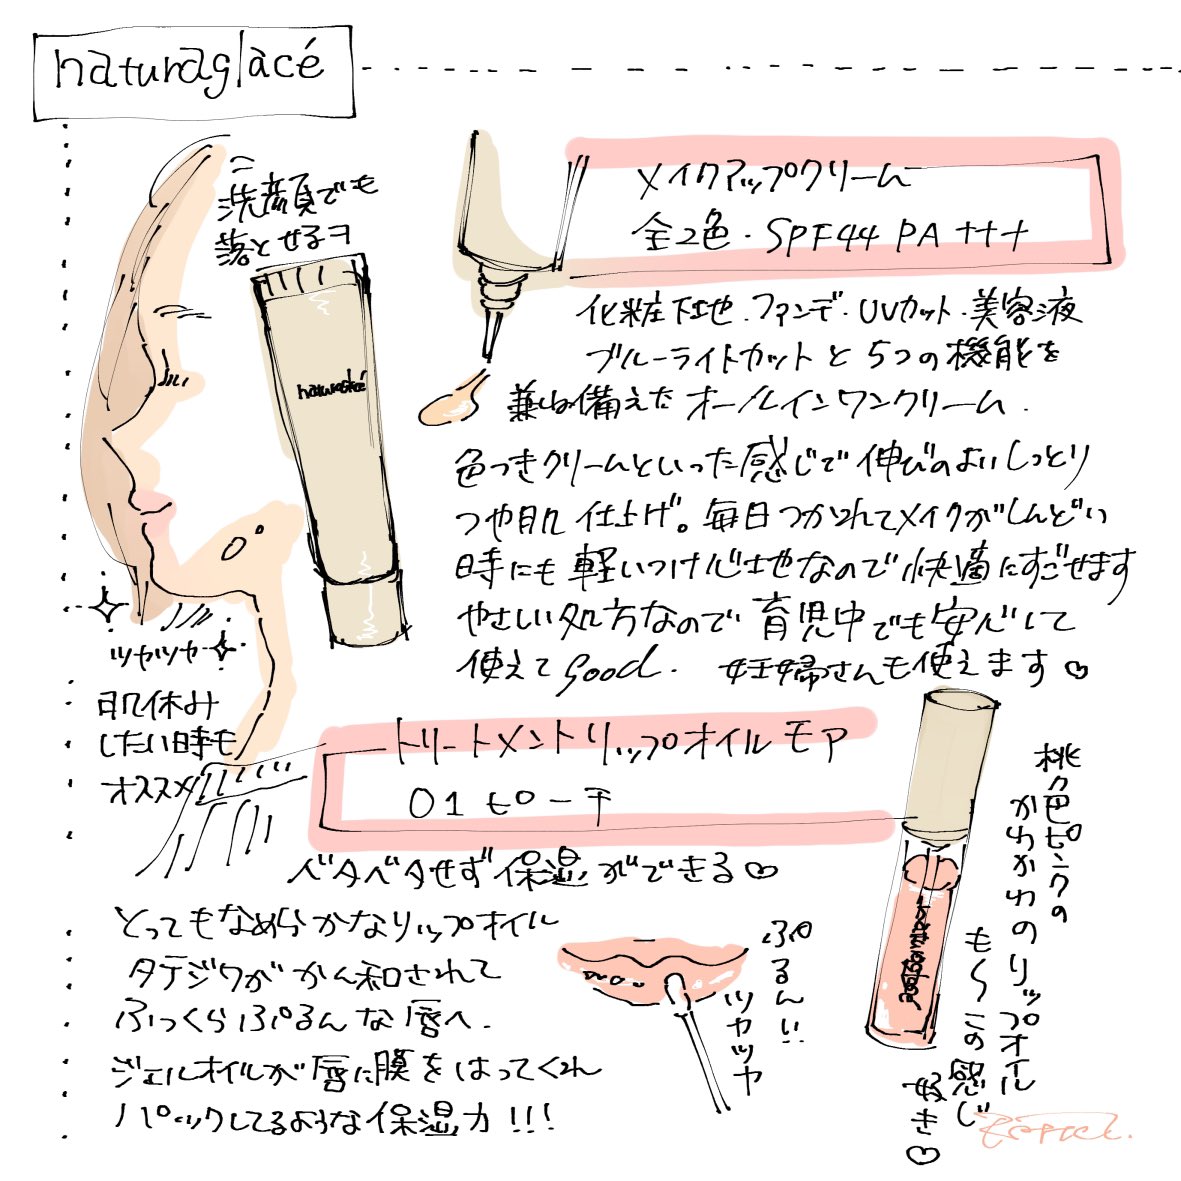 naturaglacé
洗顔でも
落とせるヨ
naturaglacé
メイクアップクリーム
全2色・SPF44 PA+++
化粧下地・ファンデ・UVカット・美容液
ブルーライトカットと5つの機能を
兼ね備えたオールインワンクリーム.
色つきクリームといった感じで伸びのよいしっとり
つや肌仕上げ。毎日つかれてメイクがしんどい
時にも軽いつけ心地なので快適にすごせます
やさしい処方なので育児中でも安心して
使えてGood. 妊婦さんも使えます♡
ツヤツヤ
肌休み
したい時も
オススメ
トリートメントリップオイルモア
01ピーチ
ベタベタせず保湿ができる♡
とってもなめらかなリップオイル
タテジワがかん和されて
ふっくらぷるんな唇へ.
ジェルオイルが唇に膜をはってくれ
パックしてるような保湿力!!!
ぷるん!!
ツヤツヤ
naturaglacé
桃色ピンクの
かわかわのリップオイル
も〜この感じ
好き♡